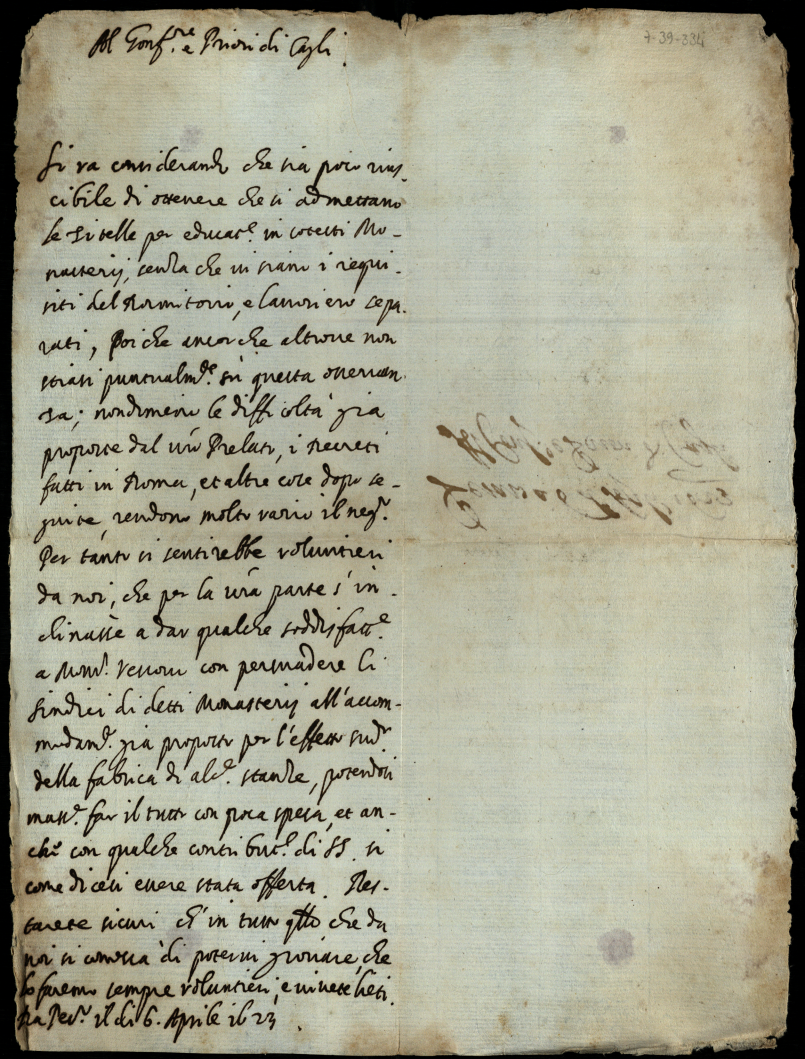 Al Gonf.re e Priori di Cagli.
7-39-334
Si va considerando che sia poco rius-
cibile di ottenere che si admettano
le Zitelle per educat.e in cotesti Mo-
nasterij, senza che vi siano i requi-
siti del Dormitorio, e lavoriero sepa-
rati, Poiche ancor che altrove non
stiasi puntualm.te sù questa osservan-
za; nondimeno le difficoltà già
proposte dal vro Prelato, i Decreti
fatti in Roma, et altre cose dopo se-
guite, rendono molto vario il neg.o
Per tanto si sentirebbe voluntieri
da noi, che per la vra parte s'in-
clinasse a dar qualche soddisfatt.e
a Mons.r Vescovo con persuadere li
sindici di detti Monasterij all'accom-
modam.o già proposto per l'effetto sud.o
della fabrica di alc.e stanze, potendosi
mass.e far il tutto con poca spesa, et an-
che con qualche contribut.e di SS. si
come dicesi essere stata offerta. Res-
tarete sicuri ch'in tutto qllo che da
noi si conosca di potervi giovare, che
lo faremo sempre voluntieri, e vivete lieti.
Da Pes.o il di 6. Aprile i623